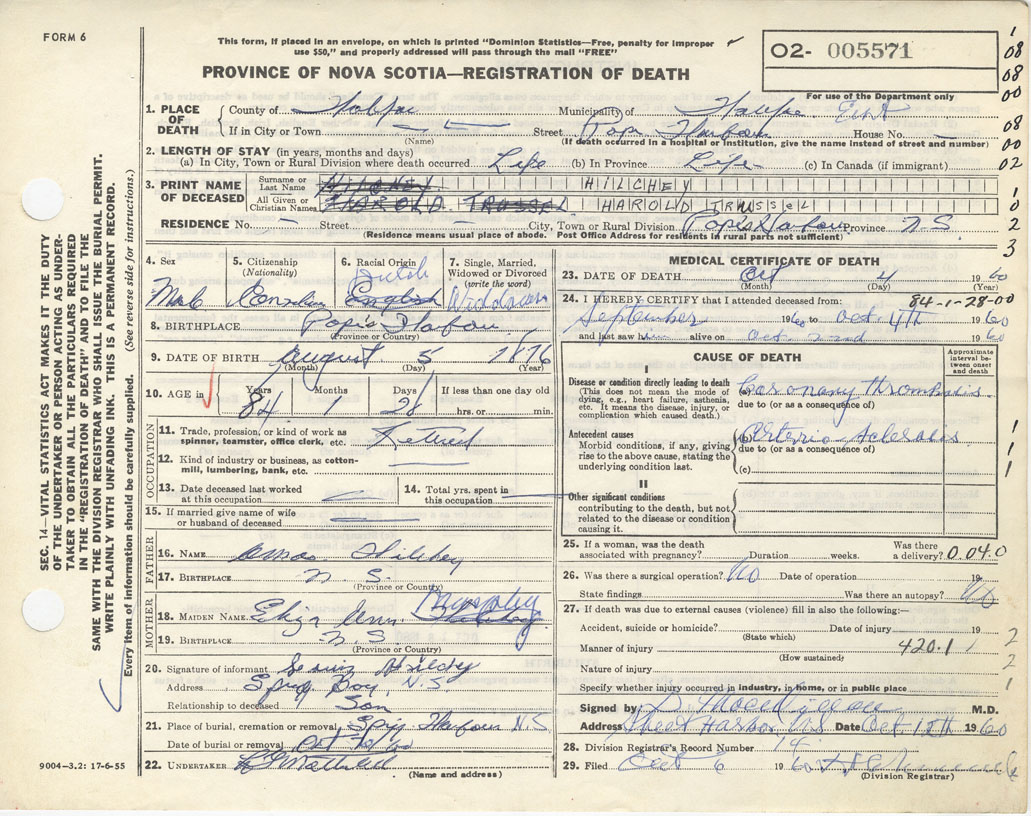 FORM 6
This form, if placed in an envelope, on which is printed "Dominion Statistics—Free, penalty for improper
use $50," and properly addressed will pass through the mail "FREE"
PROVINCE OF NOVA SCOTIA—REGISTRATION OF DEATH
02- 005571
For use of the Department only
1
08
08
00
08
00
02
1
0
2
3
1. PLACE OF DEATH
County of Halifax Municipality of Halifax East
If in City or Town — Street Popes Harbour House No. —
(Name) (If death occurred in a hospital or institution, give the name instead of street and number)
2. LENGTH OF STAY (in years, months and days)
(a) In City, Town or Rural Division where death occurred Life (b) In Province Life (c) In Canada (if immigrant)
3. PRINT NAME OF DECEASED
Surname or Last Name HILCHEY HILCHEY
All Given or Christian Names HAROLD TRUSSEL HAROLD TRUSSEL
RESIDENCE No. — Street — City, Town or Rural Division Popes Harbour Province N S
(Residence means usual place of abode. Post Office Address for residents in rural parts not sufficient)
4. Sex
Male
5. Citizenship
(Nationality)
Canadian
6. Racial Origin
Dutch
English
7. Single, Married,
Widowed or Divorced
(write the word)
Widower
8. BIRTHPLACE Pope's Harbour
(Province or Country)
9. DATE OF BIRTH August 5 1876
(Month) (Day) (Year)
10. AGE in
Years Months Days If less than one day old
84 1 28 hrs. or min.
OCCUPATION
11. Trade, profession or kind of work as
spinner, teamster, office clerk, etc. Retired
12. Kind of industry or business, as cotton-
mill, lumbering, bank, etc. —
13. Date deceased last worked
at this occupation —
14. Total yrs. spent in
this occupation —
15. If married give name of wife
or husband of deceased —
FATHER
16. NAME Amos Hilchey
17. BIRTHPLACE N. S.
(Province or Country)
MOTHER
18. MAIDEN NAME Ann
19. BIRTHPLACE N S
(Province or Country)
20. Signature of informant Hilchey
Address Spry Bay, N.S
Relationship to deceased Son
21. Place of burial, cremation or removal Harbour N.S
Date of burial or removal Oct
22. UNDERTAKER
(Name and address)
MEDICAL CERTIFICATE OF DEATH
23. DATE OF DEATH Oct 4 1960
(Month) (Day) (Year)
84-1-28-00
24. I HEREBY CERTIFY that I attended deceased from:
September 1960 to Oct 4th 1960
and last saw him alive on Oct 2nd 1960
CAUSE OF DEATH
Approximate
interval be-
tween onset
and death
I
Disease or condition directly leading to death
(This does not mean the mode of
dying, e.g., heart failure, asthenia,
etc. It means the disease, injury, or
complication which caused death.)
(a) Coronary thrombosis
due to (or as a consequence of)
Antecedent causes
Morbid conditions, if any, giving
rise to the above cause, stating the
underlying condition last.
(b) Arterio Sclerosis
due to (or as a consequence of)
(c)
II
Other significant conditions
contributing to the death, but not
related to the disease or condition
causing it.
1
1
1
25. If a woman, was the death
associated with pregnancy? Duration weeks. Was there
a delivery? 0.04.0
26. Was there a surgical operation? No Date of operation 19
State findings Was there an autopsy? No
27. If death was due to external causes (violence) fill in also the following:—
Accident, suicide or homicide? Date of injury 19
(State which)
Manner of injury 420.1
(How sustained)
Nature of injury
Specify whether injury occurred in industry, in home, or in public place
2
2
1
Signed by M.D.
Address Sheet Harbor, N.S Date Oct 1960
28. Division Registrar's Record Number 14
29. Filed Oct 6 1960
(Division Registrar)
9004—3.2: 17-6-55
SEC. 14—VITAL STATISTICS ACT MAKES IT THE DUTY
OF THE UNDERTAKER OR PERSON ACTING AS UNDER-
TAKER TO OBTAIN ALL THE PARTICULARS REQUIRED
IN THE "REGISTRATION OF DEATH" AND TO FILE THE
SAME WITH THE DIVISION REGISTRAR WHO SHALL ISSUE THE BURIAL PERMIT.
WRITE PLAINLY WITH UNFADING INK. THIS IS A PERMANENT RECORD.
Every item of information should be carefully supplied. (See reverse side for instructions.)